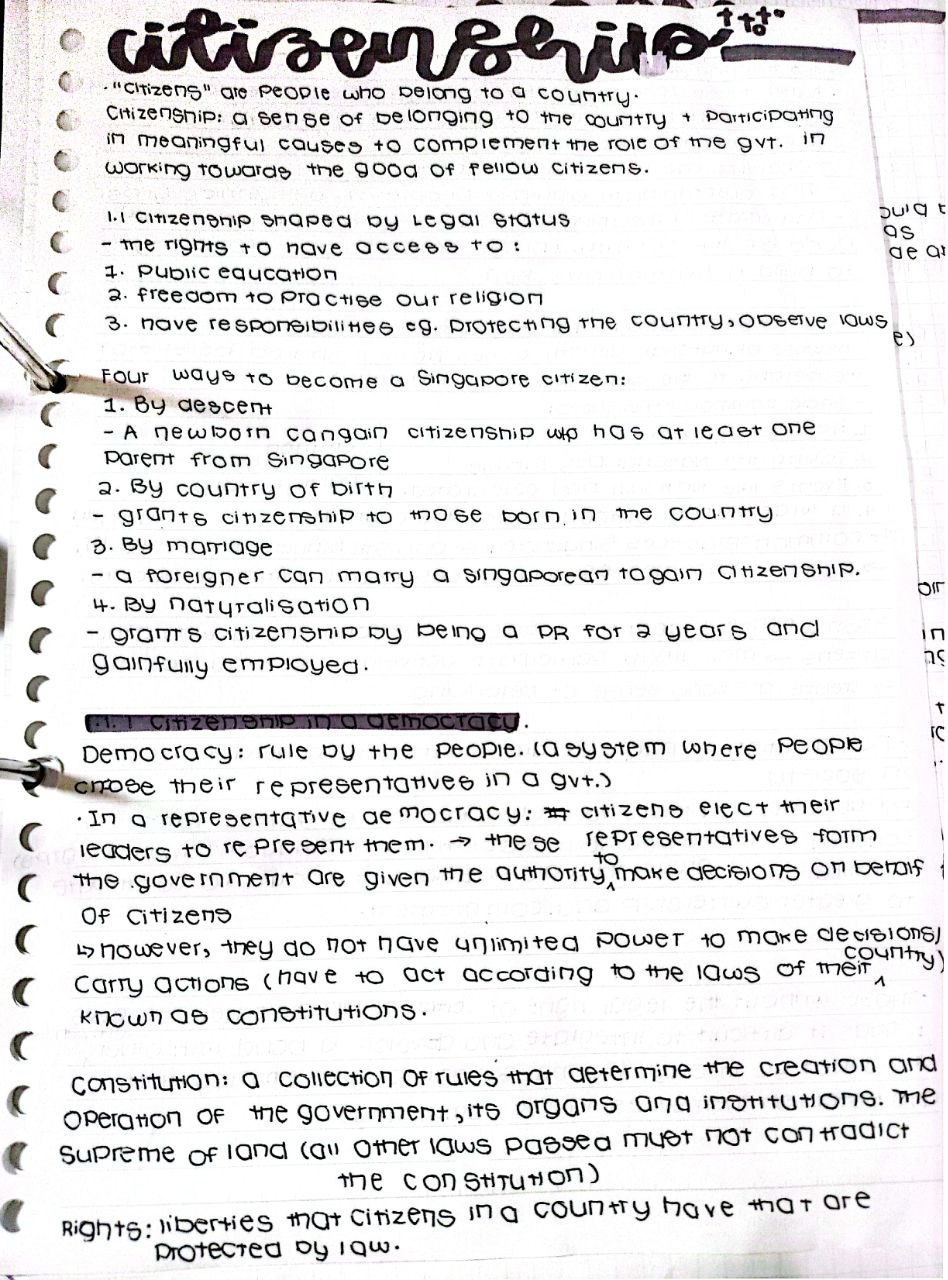 citizenship
· "citizens" are people who belong to a country.
Citizenship: a sense of belonging to the country + participating
in meaningful causes to complement the role of the gvt. in
working towards the good of fellow citizens.
1.1 Citizenship shaped by Legal Status
- the rights to have access to:
1. Public education
2. freedom to practise our religion
3. have responsibilities eg. protecting the country, observe laws
Four ways to become a Singapore citizen:
1. By descent
- A newborn can gain citizenship who has at least one
parent from Singapore
2. By country of birth
- grants citizenship to those born in the country
3. By marriage
- a foreigner can marry a Singaporean to gain citizenship.
4. By naturalisation
- grants citizenship by being a PR for 2 years and
gainfully employed.
1.1.1 Citizenship in a democracy.
Democracy: rule by the people. (a system where people
chose their representatives in a gvt.)
· In a representative democracy: citizens elect their
leaders to represent them. → these representatives form
the government are given the authority to make decisions on behalf
of citizens
↳ however, they do not have unlimited power to make decisions/
carry actions (have to act according to the laws of their country)
known as constitutions.
Constitution: a collection of rules that determine the creation and
operation of the government, its organs and institutions. The
supreme of land (all other laws passed must not contradict
the constitution)
Rights: liberties that citizens in a country have that are
protected by law.